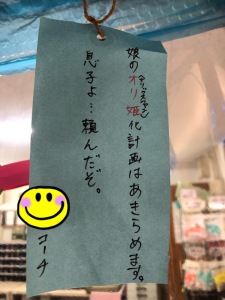 娘のオリ姫化計画はあきらめます。
息子よ…頼んだぞ。
コーチ